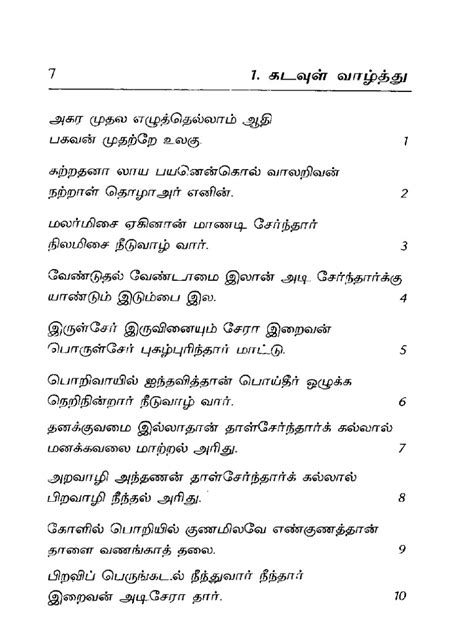 7
1. கடவுள் வாழ்த்து
அகர முதல எழுத்தெல்லாம் ஆதி
பகவன் முதற்றே உலகு. 1
கற்றதனா லாய பயனென்கொல் வாலறிவன்
நற்றாள் தொழாஅர் எனின். 2
மலர்மிசை ஏகினான் மாணடி சேர்ந்தார்
நிலமிசை நீடுவாழ் வார். 3
வேண்டுதல் வேண்டாமை இலான் அடி சேர்ந்தார்க்கு
யாண்டும் இடும்பை இல. 4
இருள்சேர் இருவினையும் சேரா இறைவன்
பொருள்சேர் புகழ்புரிந்தார் மாட்டு. 5
பொறிவாயில் ஐந்தவித்தான் பொய்தீர் ஒழுக்க
நெறிநின்றார் நீடுவாழ் வார். 6
தனக்குவமை இல்லாதான் தாள்சேர்ந்தார்க் கல்லால்
மனக்கவலை மாற்றல் அரிது. 7
அறவாழி அந்தணன் தாள்சேர்ந்தார்க் கல்லால்
பிறவாழி நீந்தல் அரிது. 8
கோளில் பொறியில் குணமிலவே எண்குணத்தான்
தாளை வணங்காத் தலை. 9
பிறவிப் பெருங்கடல் நீந்துவார் நீந்தார்
இறைவன் அடிசேரா தார். 10